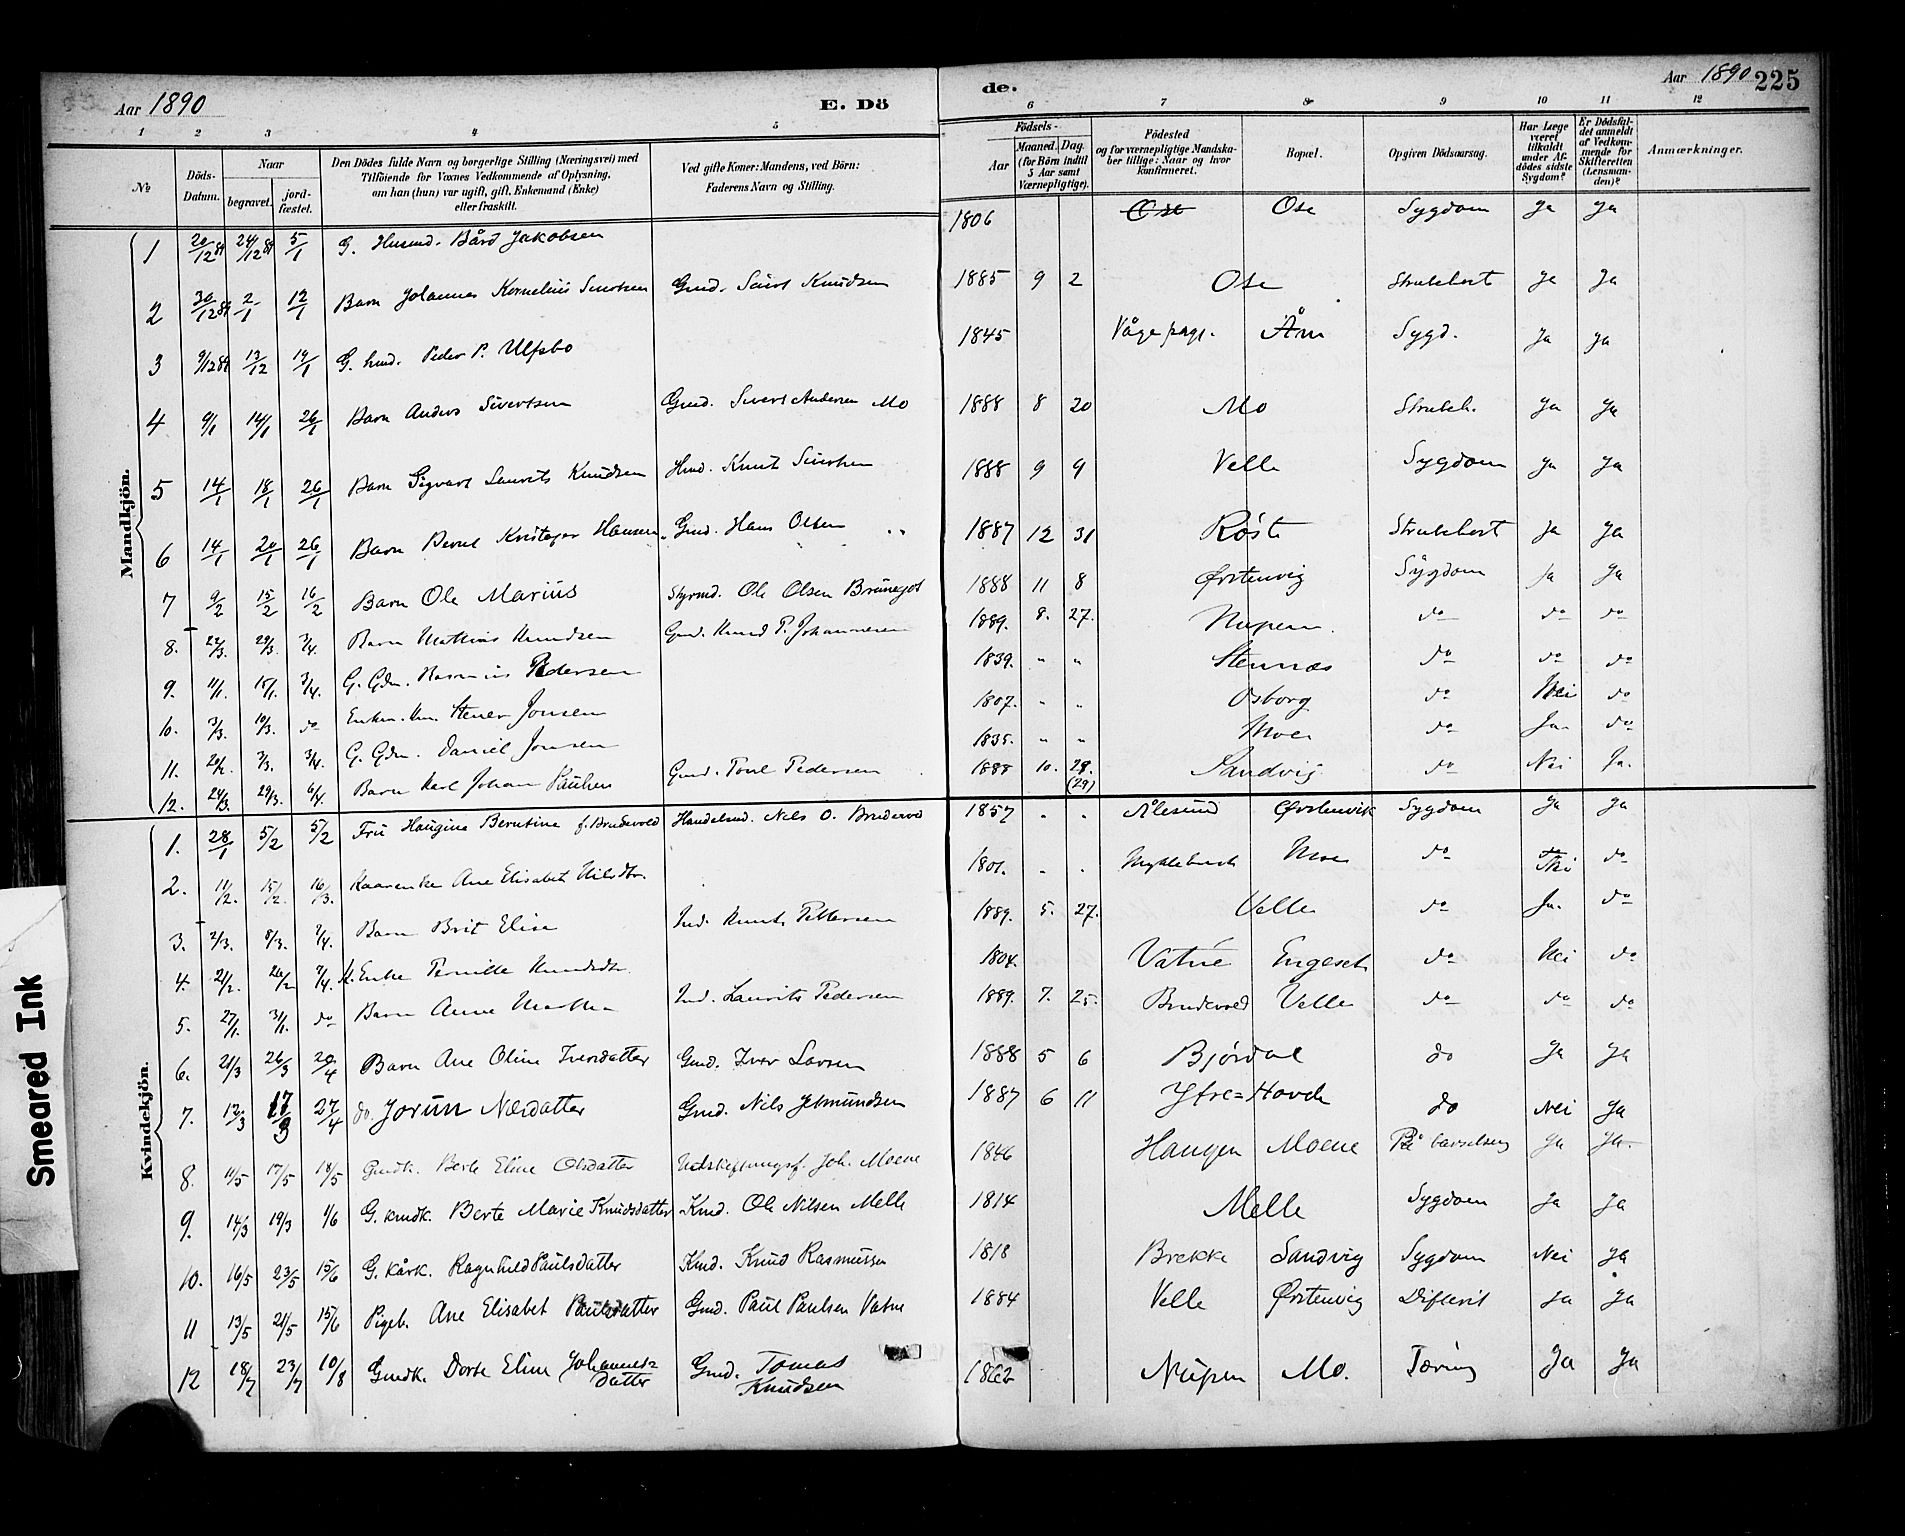 Aar 1890
E. Dö
de.
Aar 1890 225
1 2 3 4 5 6 7 8 9 10 11 12
№
Döds-Datum.
Naar
begravet.
jord-fæstet.
Den Dödes fulde Navn og borgerlige Stilling (Næringsvei) med
Tilföiende for Voxnes Vedkommende af Oplysning,
om han (hun) var ugift, gift, Enkemand (Enke)
eller fraskilt.
Ved gifte Koner: Mandens, ved Börn:
Faderens Navn og Stilling.
Födsels-
Aar
Maaned. Dag.
(for Börn indtil
5 Aar samt
Værnepligtige).
Födested
og for værnepligtige Mandska-
ber tillige: Naar og hvor
konfirmeret.
Bopæl.
Opgiven Dödsaarsag.
Har Læge
været
tilkaldt
under Af-
dödes sidste
Sygdom?
Er Dödsfal-
det anmeldt
af Vedkom-
mende for
Skifteretten
(Lensman-
den)?
Anmærkninger.
Mandkjön.
1 20/12 89 24/12 89 5/1 G. Husmd. Bård Jakobsen 1806 Ose Ose Sygdom Ja Ja
2 30/12 89 2/1 12/1 Barn Johannes Kornelius Sivertsen Gmd. Sivert Knudsen 1885 9 2 Ose Strubehost Ja Ja
3 9/12 89 13/12 19/1 G. hmd. Peder P. Ulfsbo 1845 Våge Åm Sygd. Ja Ja
4 9/1 14/1 26/1 Barn Anders Sivertsen Gmd. Sivert Andersen Mo 1888 8 20 Mo Strubeh. Ja Ja
5 14/1 18/1 26/1 Barn Sigvart Laurits Knudsen Hmd. Knut Sivertsen 1888 9 9 Velle Sygdom Ja Ja
6 14/1 20/1 26/1 Barn Bernt Kristofer Hansen Gmd. Hans Olsen 1887 12 31 Røste Strubehost Ja Ja
7 9/2 15/2 16/2 Barn Ole Marius Styrmd. Ole Olsen Brunegot 1888 11 8 Ørstenvig Sygdom Ja Ja
8. 22/3. 29/3. 7/4. Barn Mathias Knudsen Gmd. Knud P. Johannesen 1889. 8. 27. Nupen. do do do
9. 11/1. 15/1. 3/4. G. Gdm. Rasmus Pedersen 1839. " " Stennæs do do do
10. 3/3. 10/3. do Enkem. Stener Jonsen 1807. " " Osborg do Nei do
11. 20/2. 7/3. 3/4. G. Gdm. Daniel Jonsen 1835. " " Moe do Ja. do
12. 24/3. 29/3. 6/4. Barn Karl Johan Paulsen Gmd. Poul Pedersen 1888 10. 28. (29) Sandvig do Nei Ja.
Kvindekjön.
1. 28/1 5/2 5/2 Fru Haugine Berntine f. Brudevold Handelsmd. Nels O. Brudevold 1857 " " Ålesund Ørstenvik Sygdom Ja Ja
2. 11/2. 15/2. 16/3. Kaarenke Ane Elisabet Nilsdtr. 1801. " " Myklebust Moe do Nei do
3. 2/3. 8/3. 7/4. Barn Brit Elise Ind. Knut Pettersen 1889. 5. 27. Velle do Ja. do
4. 21/2. 26/2 7/4. K. Enke Pernille Knudsdtr. 1804. Vatne Engeset do Nei do
5. 27/1. 31/1. do Barn Anne Martha Ind. Laurits Pedersen 1889. 7. 25. Brudevold Velle do do do
6. 21/3 26/3 20/4 Barn Ane Oline Iversdatter Gmd. Iver Larsen 1888 5 6 Bjørdal do Ja Ja
7. 12/3 17/3 27/4 do. Jorun Nilsdatter Gmd. Nils Jetmundsen 1887 6 11 Ytre-Hovde do Nei Ja
8. 11/5 17/5 18/5 Gmdk. Berte Eline Olsdatter Udskiftningsf. Joh. Moene 1846 Haugen Moene På barselseng Ja Ja
9. 14/3 19/3 1/6 G. kmdk. Berte Marie Knudsdatter Kmd. Ole Nilsen Melle 1814 Melle Sygdom Ja Ja
10. 16/5 23/5 15/6 G. Kårk. Ragnhild Paulsdatter Kmd. Knud Rasmussen 1818 Brekke Sandvig Sygdom Nei Ja
11 13/5 21/5 15/6 Pigeb. Ane Elisabet Paulsdatter Gmd. Paul Paulsen Vatne 1884 Velle Ørstenvig Difterit Ja Ja
12 18/7 23/7 10/8 Gmdk. Dorte Eline Johannes-datter Gmd. Tomas Knudsen 1862 Nupen Mo. Tæring Ja Ja
Smeared Ink